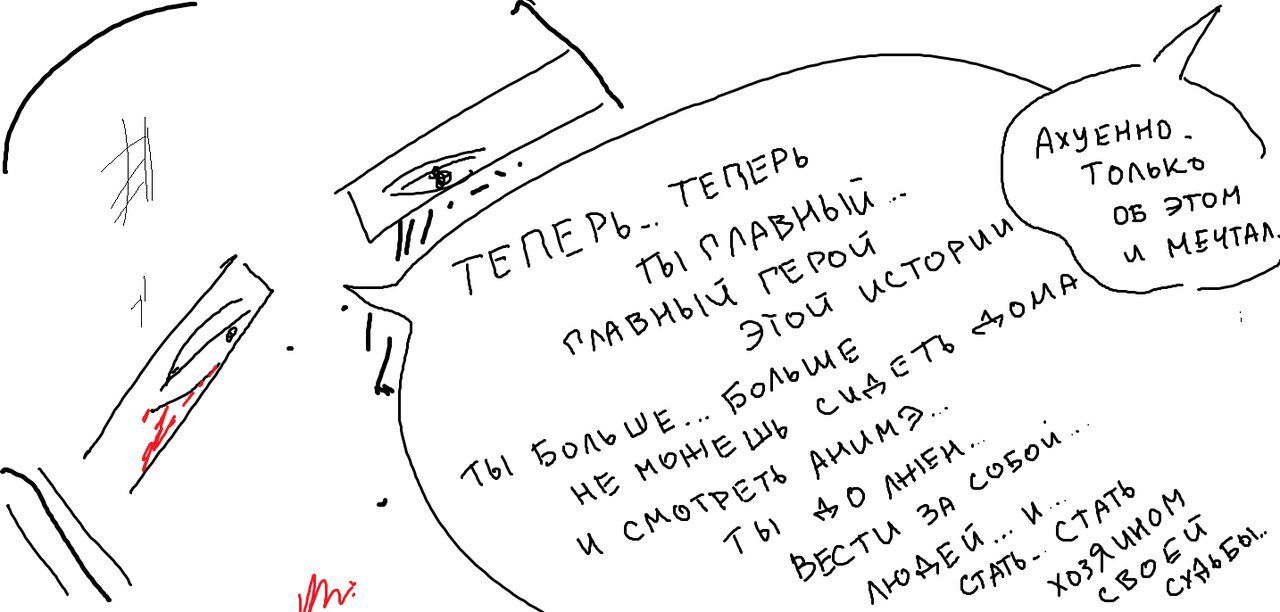 ТЕПЕРЬ.. ТЕПЕРЬ
ТЫ ГЛАВНЫЙ...
ГЛАВНЫЙ ГЕРОЙ
ЭТОЙ ИСТОРИИ
ТЫ БОЛЬШЕ... БОЛЬШЕ
НЕ МОЖЕШЬ СИДЕТЬ ДОМА
И СМОТРЕТЬ АНИМЭ...
ТЫ ДОЛЖЕН...
ВЕСТИ ЗА СОБОЙ...
ЛЮДЕЙ... И...
СТАТЬ.. СТАТЬ
ХОЗЯИНОМ
СВОЕЙ
СУДЬБЫ..
АХУЕННО.
ТОЛЬКО
ОБ ЭТОМ
И МЕЧТАЛ.